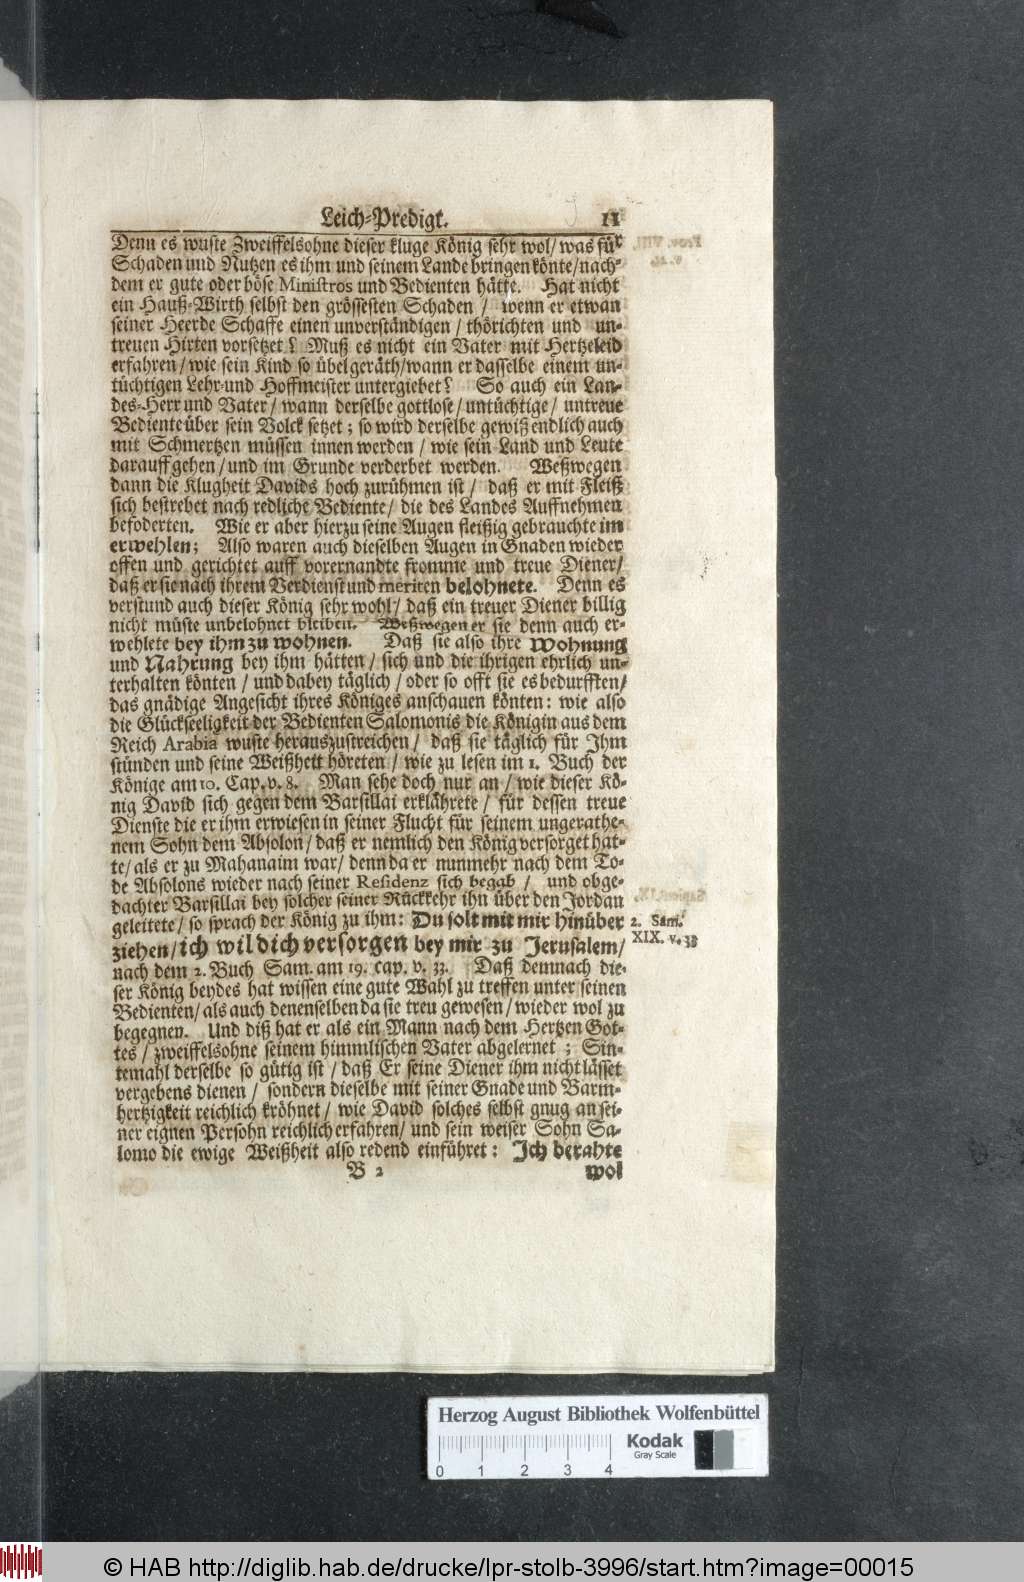 Leich-Predigt. 11
Denn es wuste Zweiffelsohne dieser kluge König sehr wol/ was für
Schaden und Nutzen es ihm und seinem Lande bringen könte/ nach-
dem er gute oder böse Ministros und Bedienten hätte. Hat nicht
ein Hauß-Wirth selbst den grössesten Schaden / wenn er etwan
seiner Heerde Schaffe einen unverständigen / thörichten und un-
treuen Hirten vorsetzet? Muß es nicht ein Vater mit Hertzeleid
erfahren / wie sein Kind so übel geräth/ wann er dasselbe einem un-
tüchtigen Lehr-und Hoffmeister untergiebet? So auch ein Lan-
des-Herr und Vater / wann derselbe gottlose / untüchtige / untreue
Bediente über sein Volck setzet ; so wird derselbe gewiß endlich auch
mit Schmertzen müssen innen werden / wie sein Land und Leute
darauff gehen / und im Grunde verderbet werden. Weßwegen
dann die Klugheit Davids hoch zurühmen ist / daß er mit Fleiß
sich bestrebet nach redliche Bediente / die des Landes Auffnehmen
befoderten. Wie er aber hierzu seine Augen fleißig gebrauchte im
erwehlen; Also waren auch dieselben Augen in Gnaden wieder
offen und gerichtet auff vorernandte fromme und treue Diener/
daß er sie nach ihrem Verdienst und meriten belohnete. Denn es
verstund auch dieser König sehr wohl / daß ein treuer Diener billig
nicht müste unbelohnet bleiben. Weßwegen er sie denn auch er-
wehlete bey ihm zu wohnen. Daß sie also ihre Wohnung
und Nahrung bey ihm hätten / sich und die ihrigen ehrlich un-
terhalten könten / und dabey täglich / oder so offt sie es bedurfften/
das gnädige Angesicht ihres Königes anschauen könten: wie also
die Glückseeligkeit der Bedienten Salomonis die Königin aus dem
Reich Arabia wuste herauszustreichen / daß sie täglich für Ihm
stünden und seine Weißheit höreten / wie zu lesen im 1. Buch der
Könige am 10. Cap. v. 8. Man sehe doch nur an / wie dieser Kö-
nig David sich gegen dem Barsillai erklährete / für dessen treue
Dienste die er ihm erwiesen in seiner Flucht für seinem ungerathe-
nem Sohn dem Absolon / daß er nemlich den König versorget hat-
te/ als er zu Mahanaim war/ denn da er nunmehr nach dem To-
de Absolons wieder nach seiner Residenz sich begab / und obge-
dachter Barsillai bey solcher seiner Rückkehr ihn über den Jordan
geleitete / so sprach der König zu ihm: Du solt mit mir hinüber
ziehen / ich wil dich versorgen bey mir zu Jerusalem/
2. Sam.
XIX. v. 33
nach dem 2. Buch Sam. am 19. cap. v. 33. Daß demnach die-
ser König beydes hat wissen eine gute Wahl zu treffen unter seinen
Bedienten/ als auch denenselben da sie treu gewesen / wieder wol zu
begegnen. Und diß hat er als ein Mann nach dem Hertzen Got-
tes / zweiffelsohne seinem himmlischen Vater abgelernet ; Sin-
temahl derselbe so gütig ist / daß Er seine Diener ihm nicht lässet
vergebens dienen / sondern dieselbe mit seiner Gnade und Barm-
hertzigkeit reichlich kröhnet / wie David solches selbst gnug an sei-
ner eignen Persohn reichlich erfahren / und sein weiser Sohn Sa-
lomo die ewige Weißheit also redend einführet : Ich berahte
B 2 wol
Herzog August Bibliothek Wolfenbüttel
Kodak
Gray Scale
0 1 2 3 4
© HAB http://diglib.hab.de/drucke/lpr-stolb-3996/start.htm?image=00015